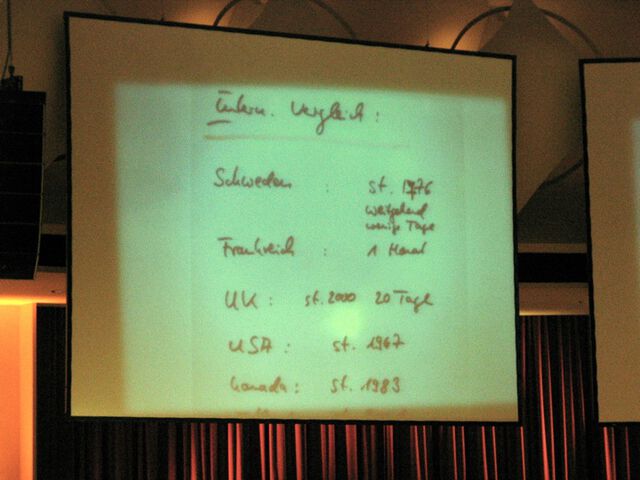 Intern. Vergleich:
Schweden : st. 1976
weitgehend
wenige Tage
Frankreich : 1 Monat
UK: st. 2000 20 Tage
USA: st. 1967
Kanada: st. 1983